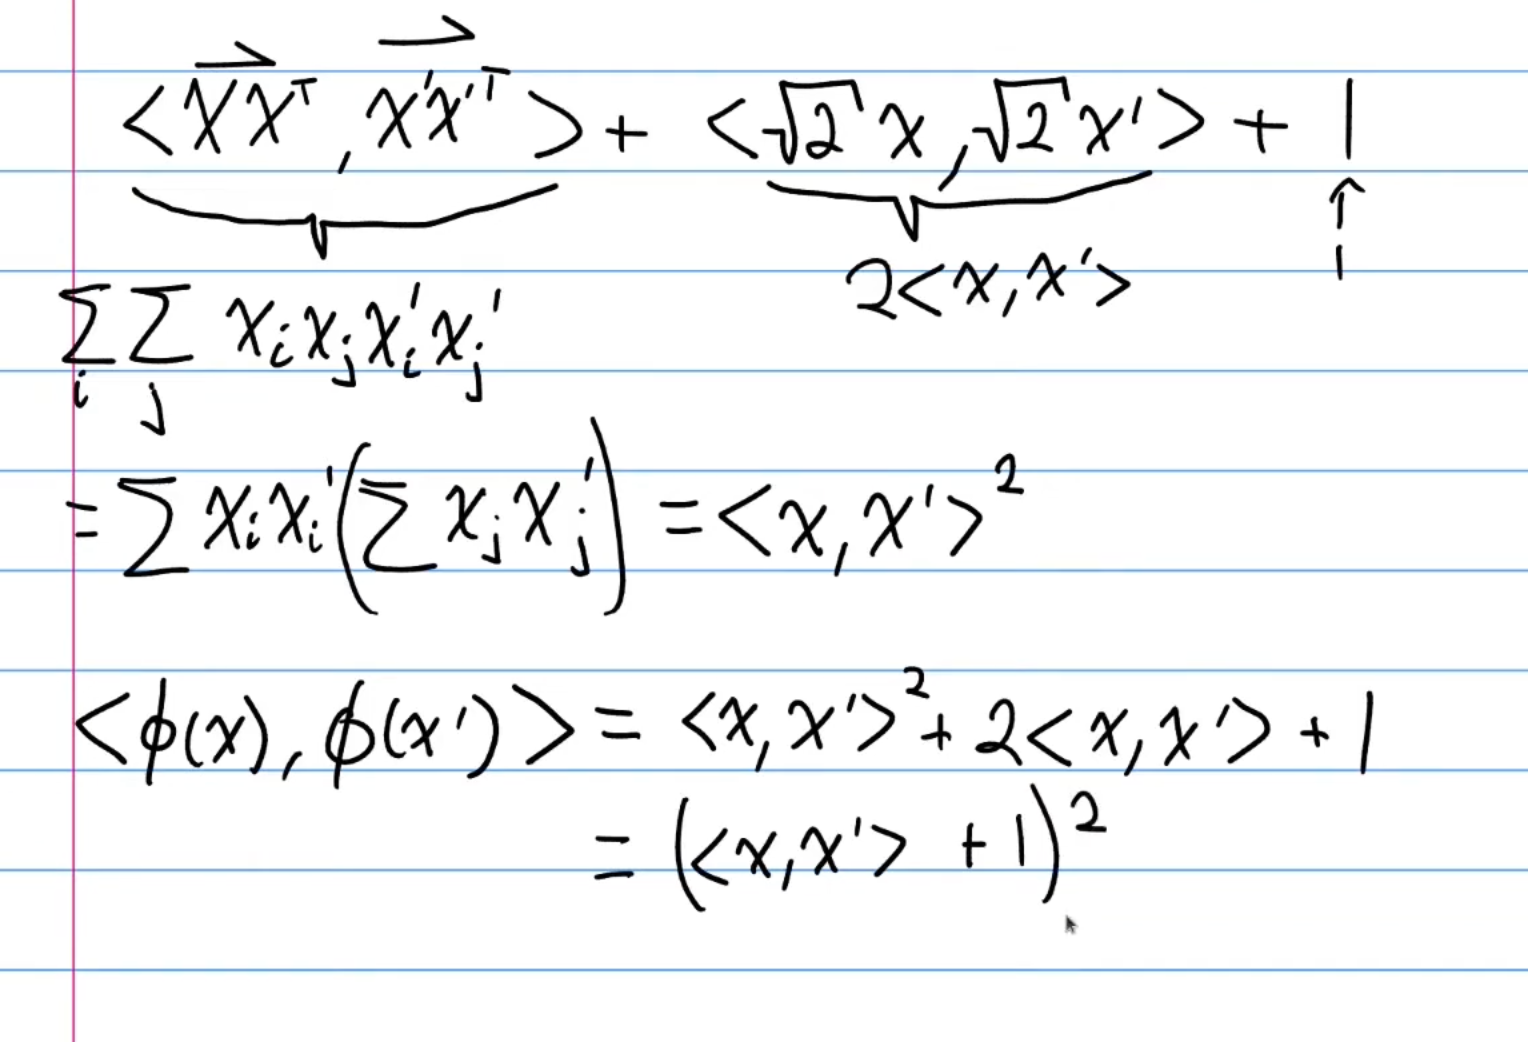 <xxᵀ, x'x'ᵀ> + <√2 x, √2 x'> + 1
2<x, x'>
1
∑ᵢ ∑ⱼ xᵢxⱼxᵢ'xⱼ'
= ∑ xᵢxᵢ' (∑ xⱼxⱼ') = <x, x'>²
<ϕ(x), ϕ(x')> = <x, x'>² + 2<x, x'> + 1
= (<x, x'> + 1)²